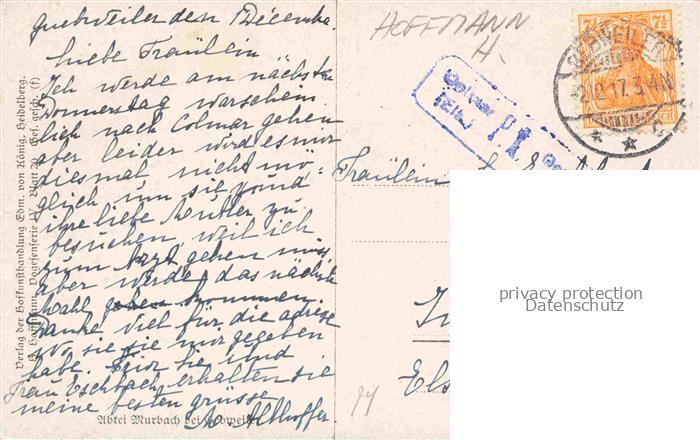 Guebweiler den 1 Décembre
liebe Fräulein
Ich werde am nächsten
Donnerstag warschein
lich nach Colmar gehen
aber leider wird es mir
diesmal nicht mö-
glich um sie und
ihre liebe Mutter zu
besuchen weil ich
zum Arzt gehen muss
aber werde das nächste
Mahl kommen.
Danke viel für die adresse
wo sie sie mir gegeben
habe. Für Sie und
Frau Eschbach erhalten sie
meine besten grüsse
Althoffer
Abtei Murbach bei Gebweiler
Verlag der Hofkunsthandlung Edm. von König, Heidelberg.
H. Hoffmann, Vogesenserie IV Blatt 20 Ges. gesch. (f)
HOFFMANN
H.
7½ 7½
GEBWEILER
12.17.3-4N
Fräulein
Els
privacy protection
Datenschutz